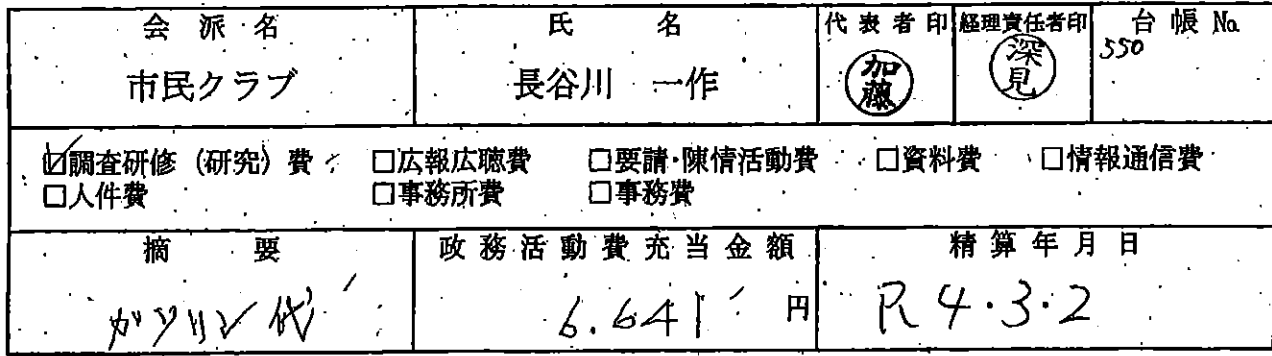 会派名 氏名 代表者印 経理責任者印 台帳No.
市民クラブ 長谷川 一作 加藤 深見 550
☑調査研修（研究）費 □広報広聴費 □要請・陳情活動費 □資料費 □情報通信費
□人件費 □事務所費 □事務費
摘要 政務活動費充当金額 精算年月日
ガソリン代 6.641 円 R4・3・2